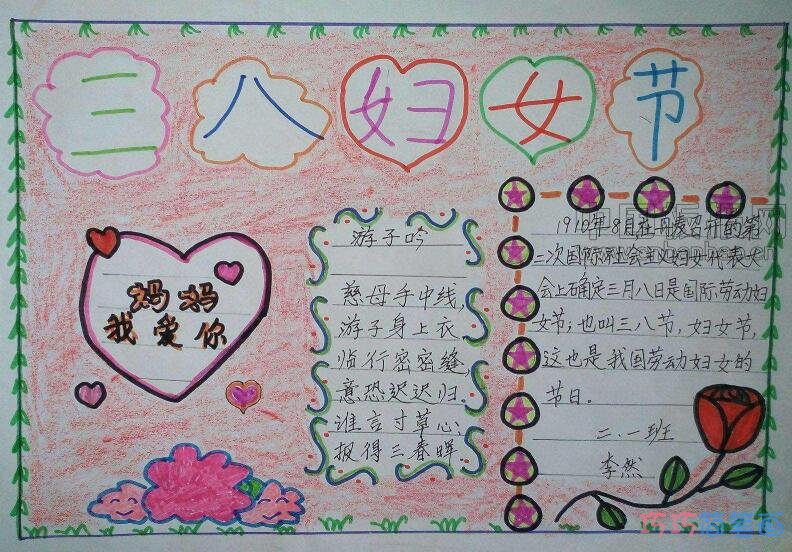 三八妇女节
妈妈
我爱你
游子吟
慈母手中线,
游子身上衣
临行密密缝,
意恐迟迟归。
谁言寸草心
报得三春晖
1910年8月在丹麦召开的第
二次国际社会主义妇女代表大
会上确定三月八日是国际劳动妇
女节;也叫三八节,妇女节,
这也是我国劳动妇女的
节日。
二.一班
李然